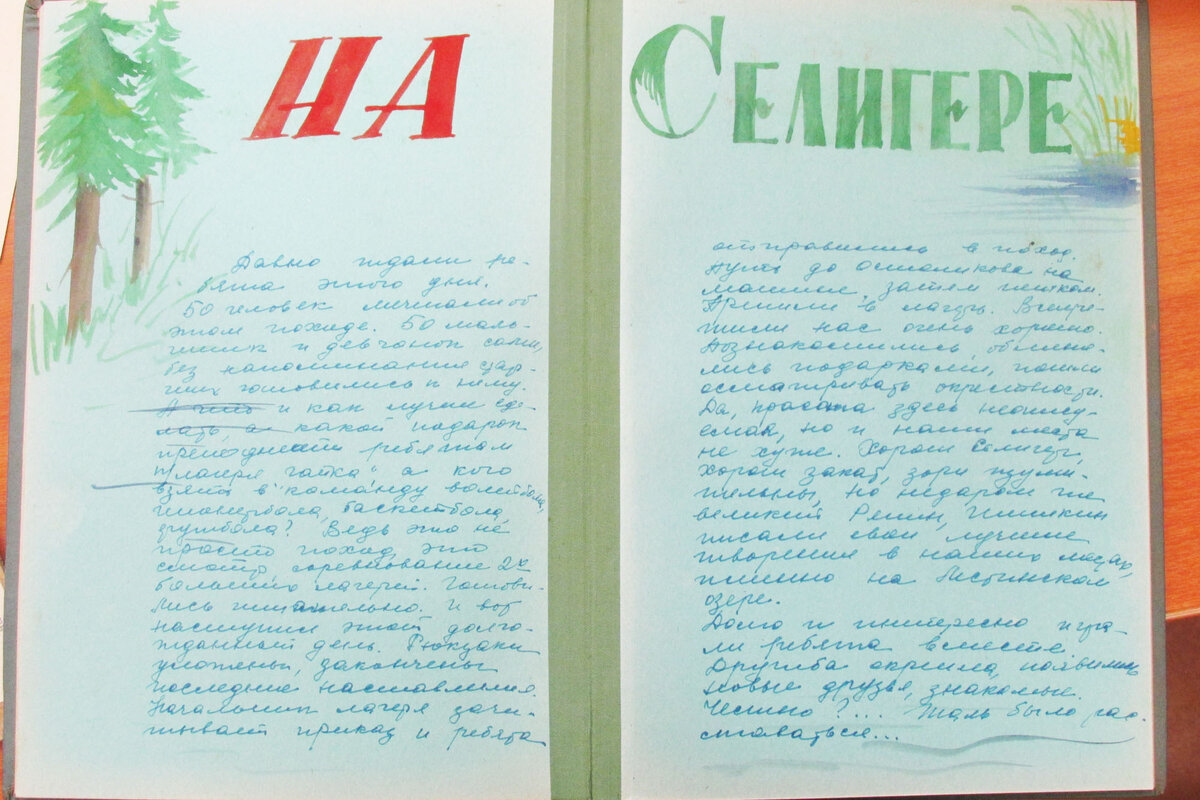 НА
Давно ждали ре-
бята этого дня.
50 человек мечтали об
этом походе. 50 маль-
чишек и девчонок сами,
без напоминания стар-
ших готовились к нему.
и как лучше сде-
лать, какой подарок
преподнести ребятам
лагеря "Чайка" а кого
взять в команду волейбола,
пионербола, баскетбола,
футбола? Ведь это не
просто поход, это
смотр соревнование 2х
больших лагерей. Готови-
лись тщательно. И вот
наступил этот долго-
жданный день. Рюкзаки
уложены, закончены
последние наставления.
Начальник лагеря зачи-
тывает приказ и ребята
СЕЛИГЕРЕ
отправились в поход.
Путь до Осташкова на
машине затем пешком.
Пришли в лагерь. Встре-
тили нас очень хорошо.
Познакомились, обменя-
лись подарками, пошли
осматривать окрестности.
Да, красота здесь неопису-
емая, но и наши места
не хуже. Хорош Селигер,
хорош закат, зори изуми-
тельны, но недаром же
великий Репин, Шишкин
писали свои лучшие
творения в наших местах,
именно на Мстинском
озере.
Долго и интересно игра-
ли ребята вместе.
Дружба окрепла, появились
новые друзья, знакомые.
Честно?... Жаль было рас-
ставаться...